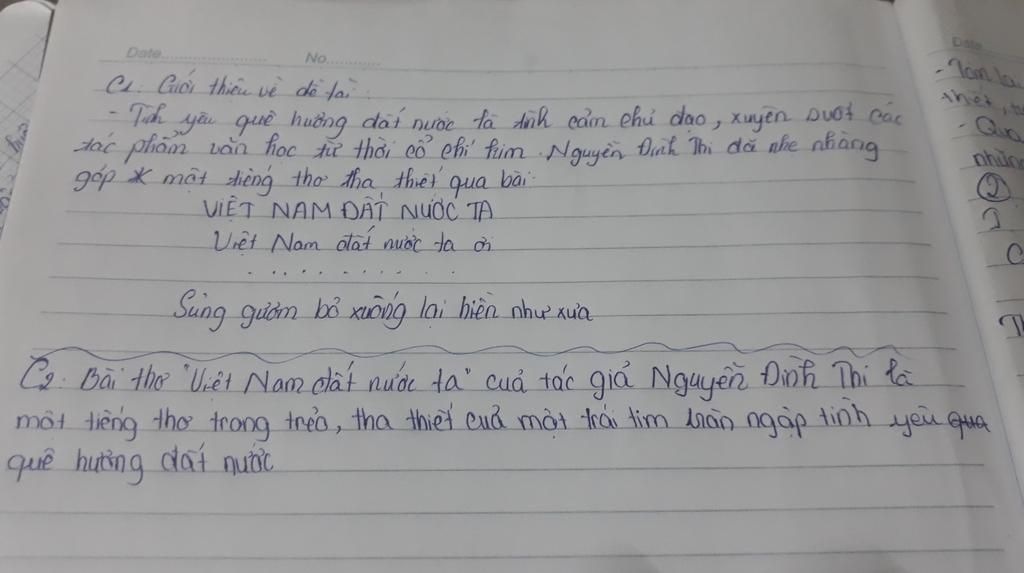 Date.............................. No.............
C1: Giới thiệu về đề tài:
- Tình yêu quê hương đất nước là tình cảm chủ đạo, xuyên suốt các
tác phẩm văn học từ thời cổ chí kim. Nguyễn Đình Thi đã nhẹ nhàng
góp một tiếng thơ tha thiết qua bài:
VIỆT NAM ĐẤT NƯỚC TA
Việt Nam đất nước ta ơi
. . . . . . . . . . . .
Súng gươm bỏ xuống lại hiền như xưa
C2: Bài thơ "Việt Nam đất nước ta" của tác giả Nguyễn Đình Thi là
một tiếng thơ trong trẻo, tha thiết của một trái tim tràn ngập tình yêu qua
quê hương đất nước
Date
- Tóm lại
thiết,
- Qua
những
2